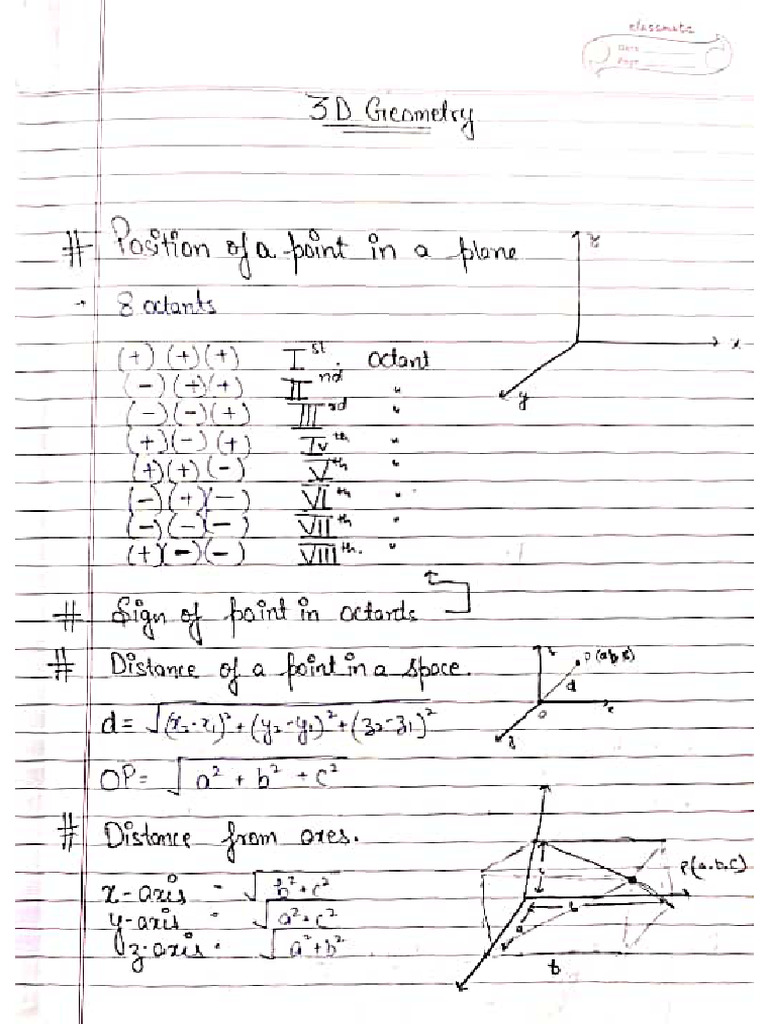 classmate
Date
Page
3D Geometry
# Position of a point in a plane
8 octants
(+) (+) (+) I st octant
(-) (+) (+) II nd "
(-) (-) (+) III rd "
(+) (-) (+) IV th "
(+) (+) (-) V th "
(-) (+) (-) VI th "
(-) (-) (-) VII th "
(+) (-) (-) VIII th. "
z
x
y
# Sign of point in octants
# Distance of a point in a space.
d = √(x₂-x₁)² + (y₂-y₁)² + (z₂-z₁)²
OP = √a² + b² + c²
P(a,b,c)
d
o
# Distance from axes.
x-axis - √b²+c²
y-axis " √a²+c²
z-axis " √a²+b²
P(a.b.c)
c
b
a